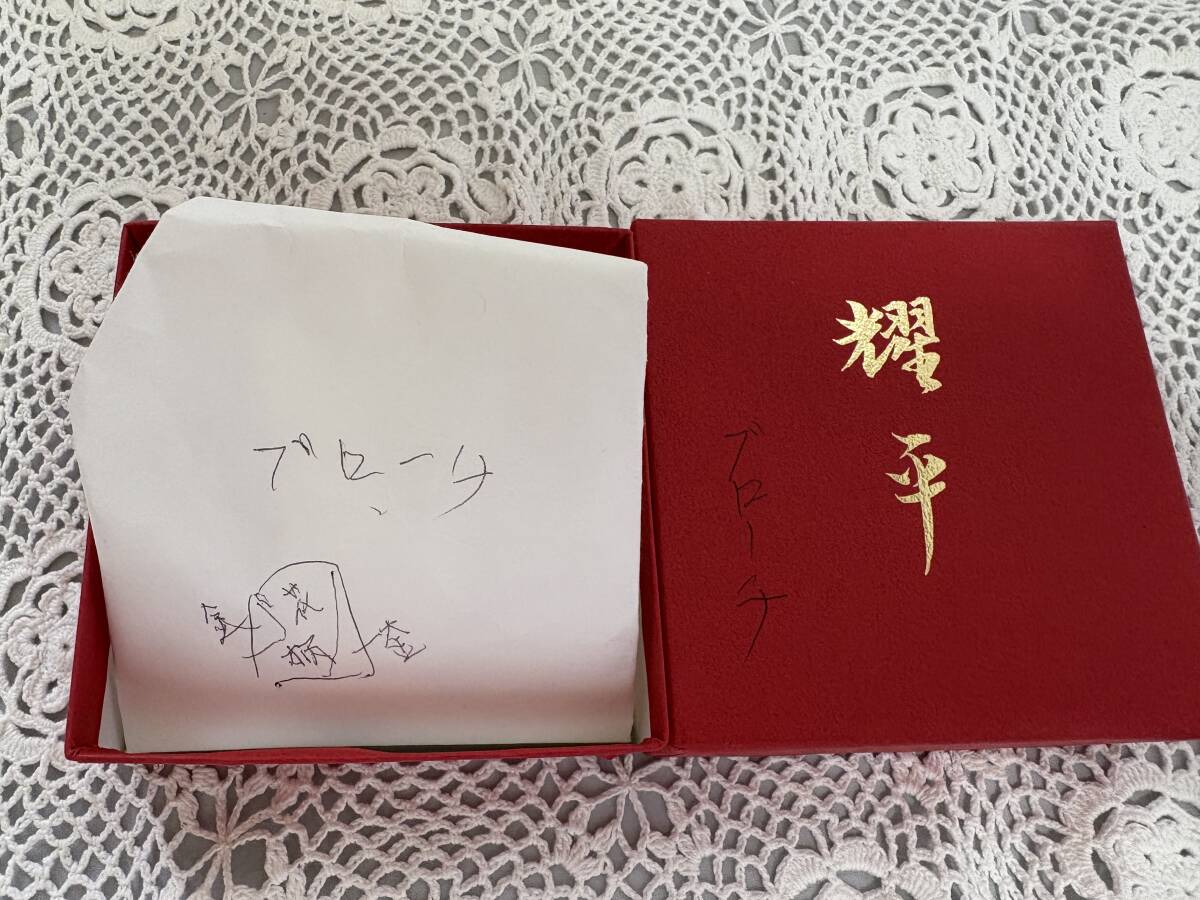 ブローチ
金
花
柄
金
耀平
ブローチ